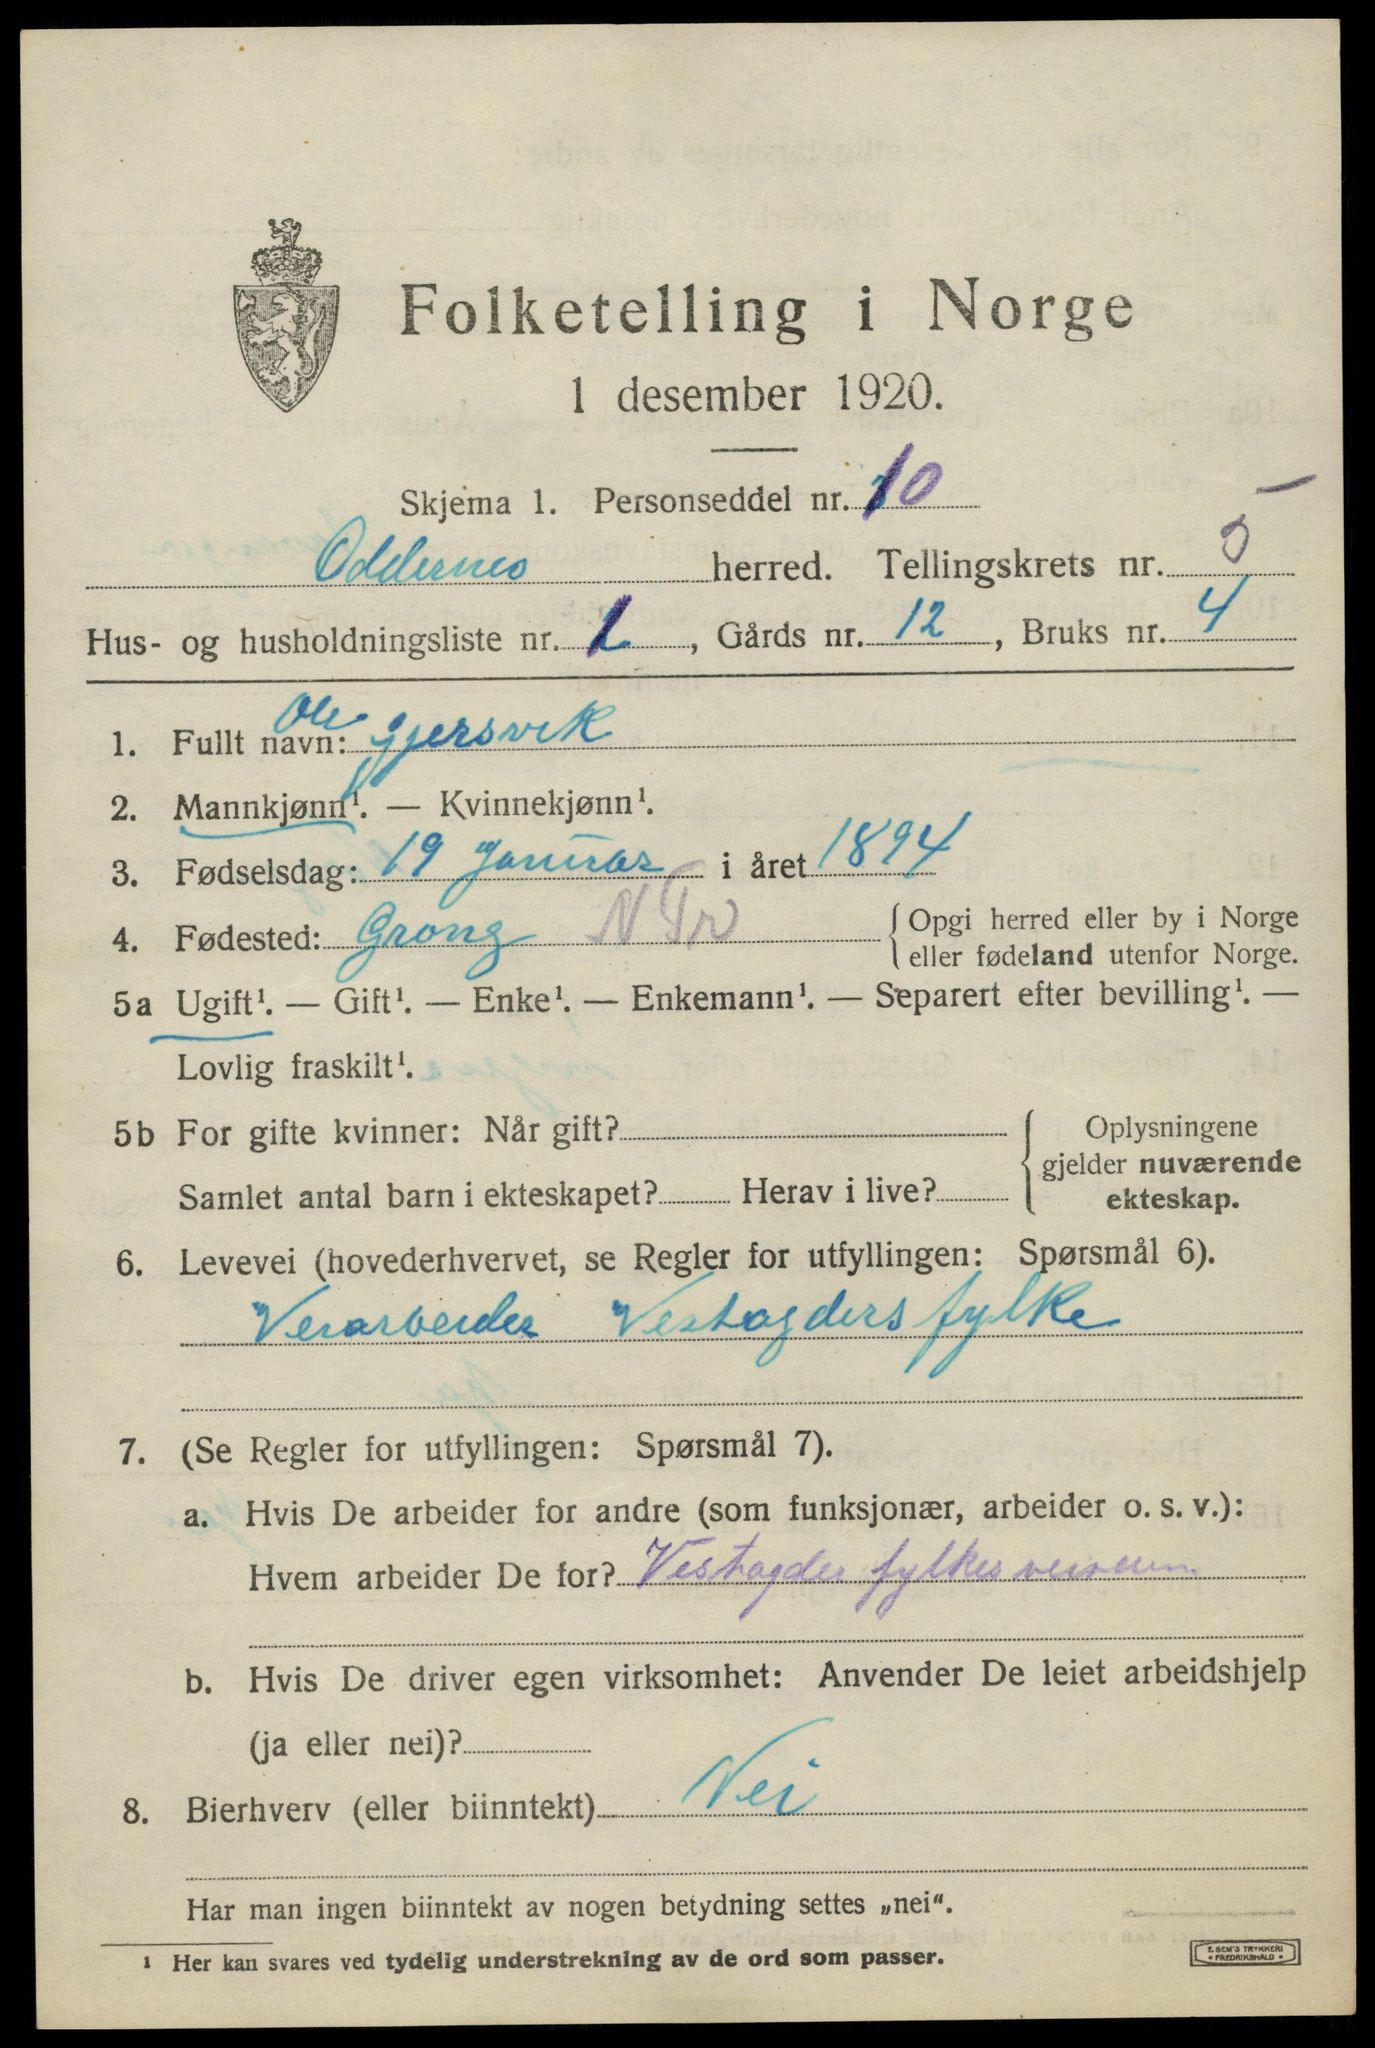 Folketelling i Norge
1 desember 1920.
Skjema 1. Personseddel nr. 10
Oddernes herred. Tellingskrets nr. 5
Hus- og husholdningsliste nr. 1, Gårds nr. 12, Bruks nr. 4
1. Fullt navn: Ole Gjersvik
2. Mannkjønn¹. — Kvinnekjønn¹.
3. Fødselsdag: 19 Januar i året 1894
4. Fødested: Grong N Tr { Opgi herred eller by i Norge
eller fødeland utenfor Norge.
5a Ugift¹. — Gift¹. — Enke¹. — Enkemann¹. — Separert efter bevilling¹. —
Lovlig fraskilt¹.
5b For gifte kvinner: Når gift? { Oplysningene
gjelder nuværende
Samlet antal barn i ekteskapet? Herav i live? ekteskap.
6. Levevei (hovederhvervet, se Regler for utfyllingen: Spørsmål 6).
Veiarbeider Vestagders fylke
7. (Se Regler for utfyllingen: Spørsmål 7).
a. Hvis De arbeider for andre (som funksjonær, arbeider o. s. v.):
Hvem arbeider De for? Vestagder fylkes
b. Hvis De driver egen virksomhet: Anvender De leiet arbeidshjelp
(ja eller nei)?
8. Bierhverv (eller biinntekt) Nei
Har man ingen biinntekt av nogen betydning settes „nei“.
¹ Her kan svares ved tydelig understrekning av de ord som passer.
E. SEM'S TRYKKERI
FREDRIKSHALD